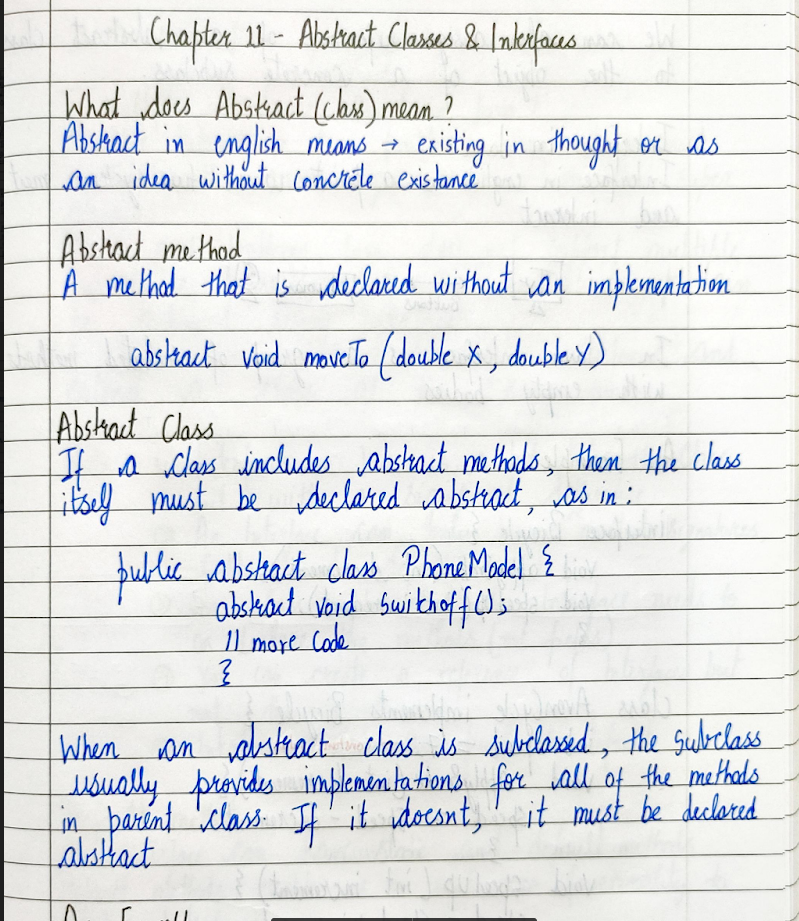 Chapter 11 - Abstract Classes & Interfaces
What does Abstract (class) mean ?
Abstract in english means → existing in thought or as
an idea without concrete existance
Abstract method
A method that is declared without an implementation
abstract void moveTo (double X, double Y)
Abstract Class
If a class includes abstract methods, then the class
itself must be declared abstract, as in :
public abstract class PhoneModel {
abstract void switchoff();
// more code
}
When an abstract class is subclassed, the subclass
usually provides implementations for all of the methods
in parent class. If it doesnt, it must be declared
abstract